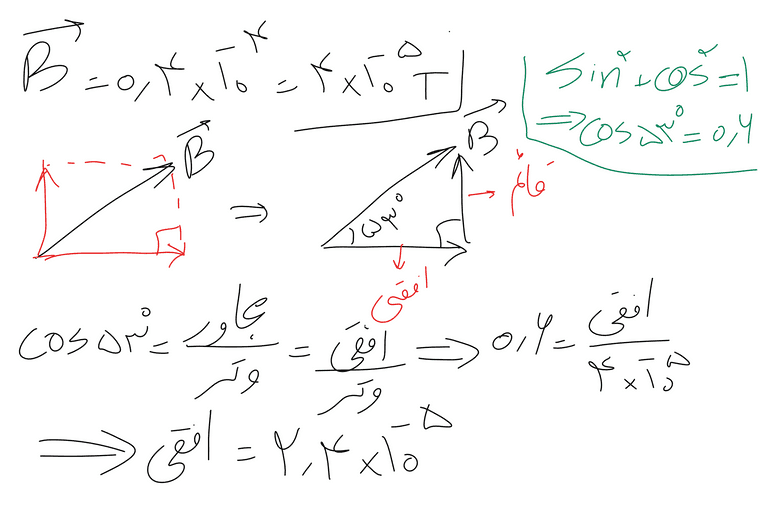 B⃗ = ۰,۴ × ۱۰⁻۴ = ۴ × ۱۰⁻۵ T
sin² + cos² = ۱
⇒ cos ۵۳° = ۰,۶
B⃗
⇒
B⃗
۵۳°
قائم
افقی
cos ۵۳° = مجاور / وتر = افقی / وتر ⇒ ۰,۶ = افقی / ۴ × ۱۰⁻۵
⇒ افقی = ۲,۴ × ۱۰⁻۵